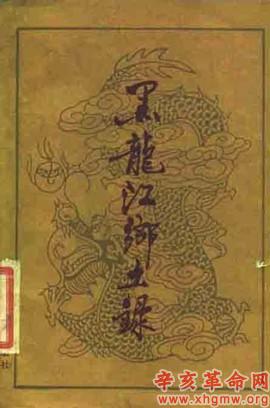 黑龍江鄉土錄
社
辛亥革命网
www.xhgmw.org